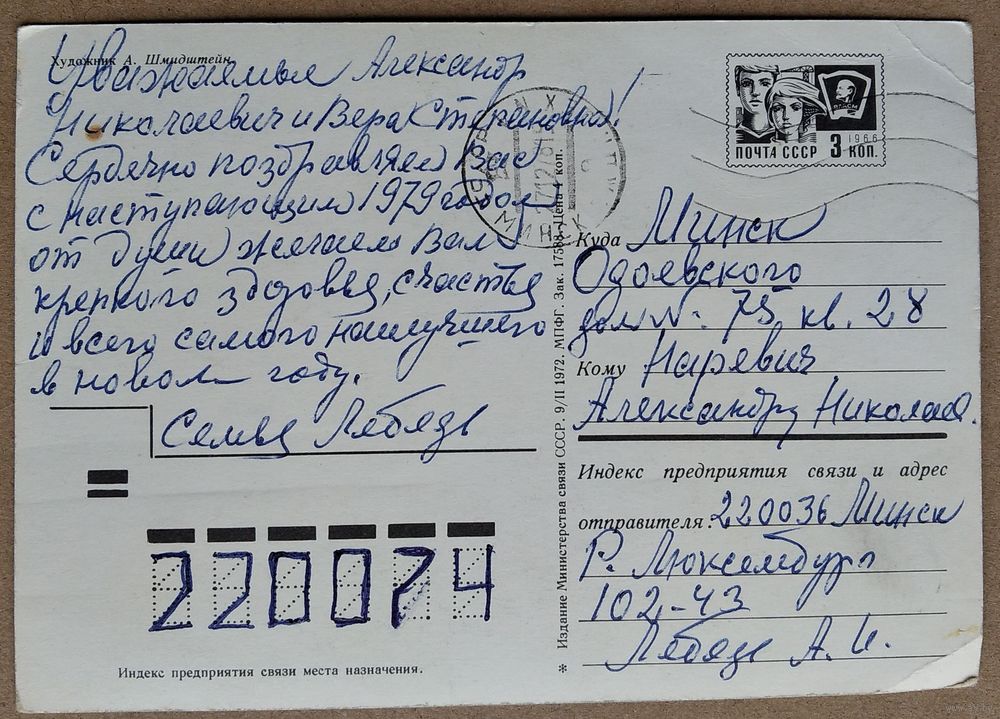 Художник А. Шмидштейн
Уважаемые Александр
Николаевич и Вера Степановна!
Сердечно поздравляем Вас
с наступающим 1979 годом
от души желаем Вам
крепкого здоровья, счастья
и всего самого наилучшего
в новом году.
Семья Лебедь
220074
Индекс предприятия связи места назначения.
* Издание Министерства связи СССР. 9/II 1972. МПФГ. Зак. 17588. Цена 4 коп.
МИНСК
ВЛКСМ
1966
ПОЧТА СССР 3 КОП.
Куда Минск
Одоевского
дом № 75 кв. 28
Кому Наревич
Александру Николаев.
Индекс предприятия связи и адрес
отправителя: 220036 Минск
Р. Люксембург
102-43
Лебедь А. И.